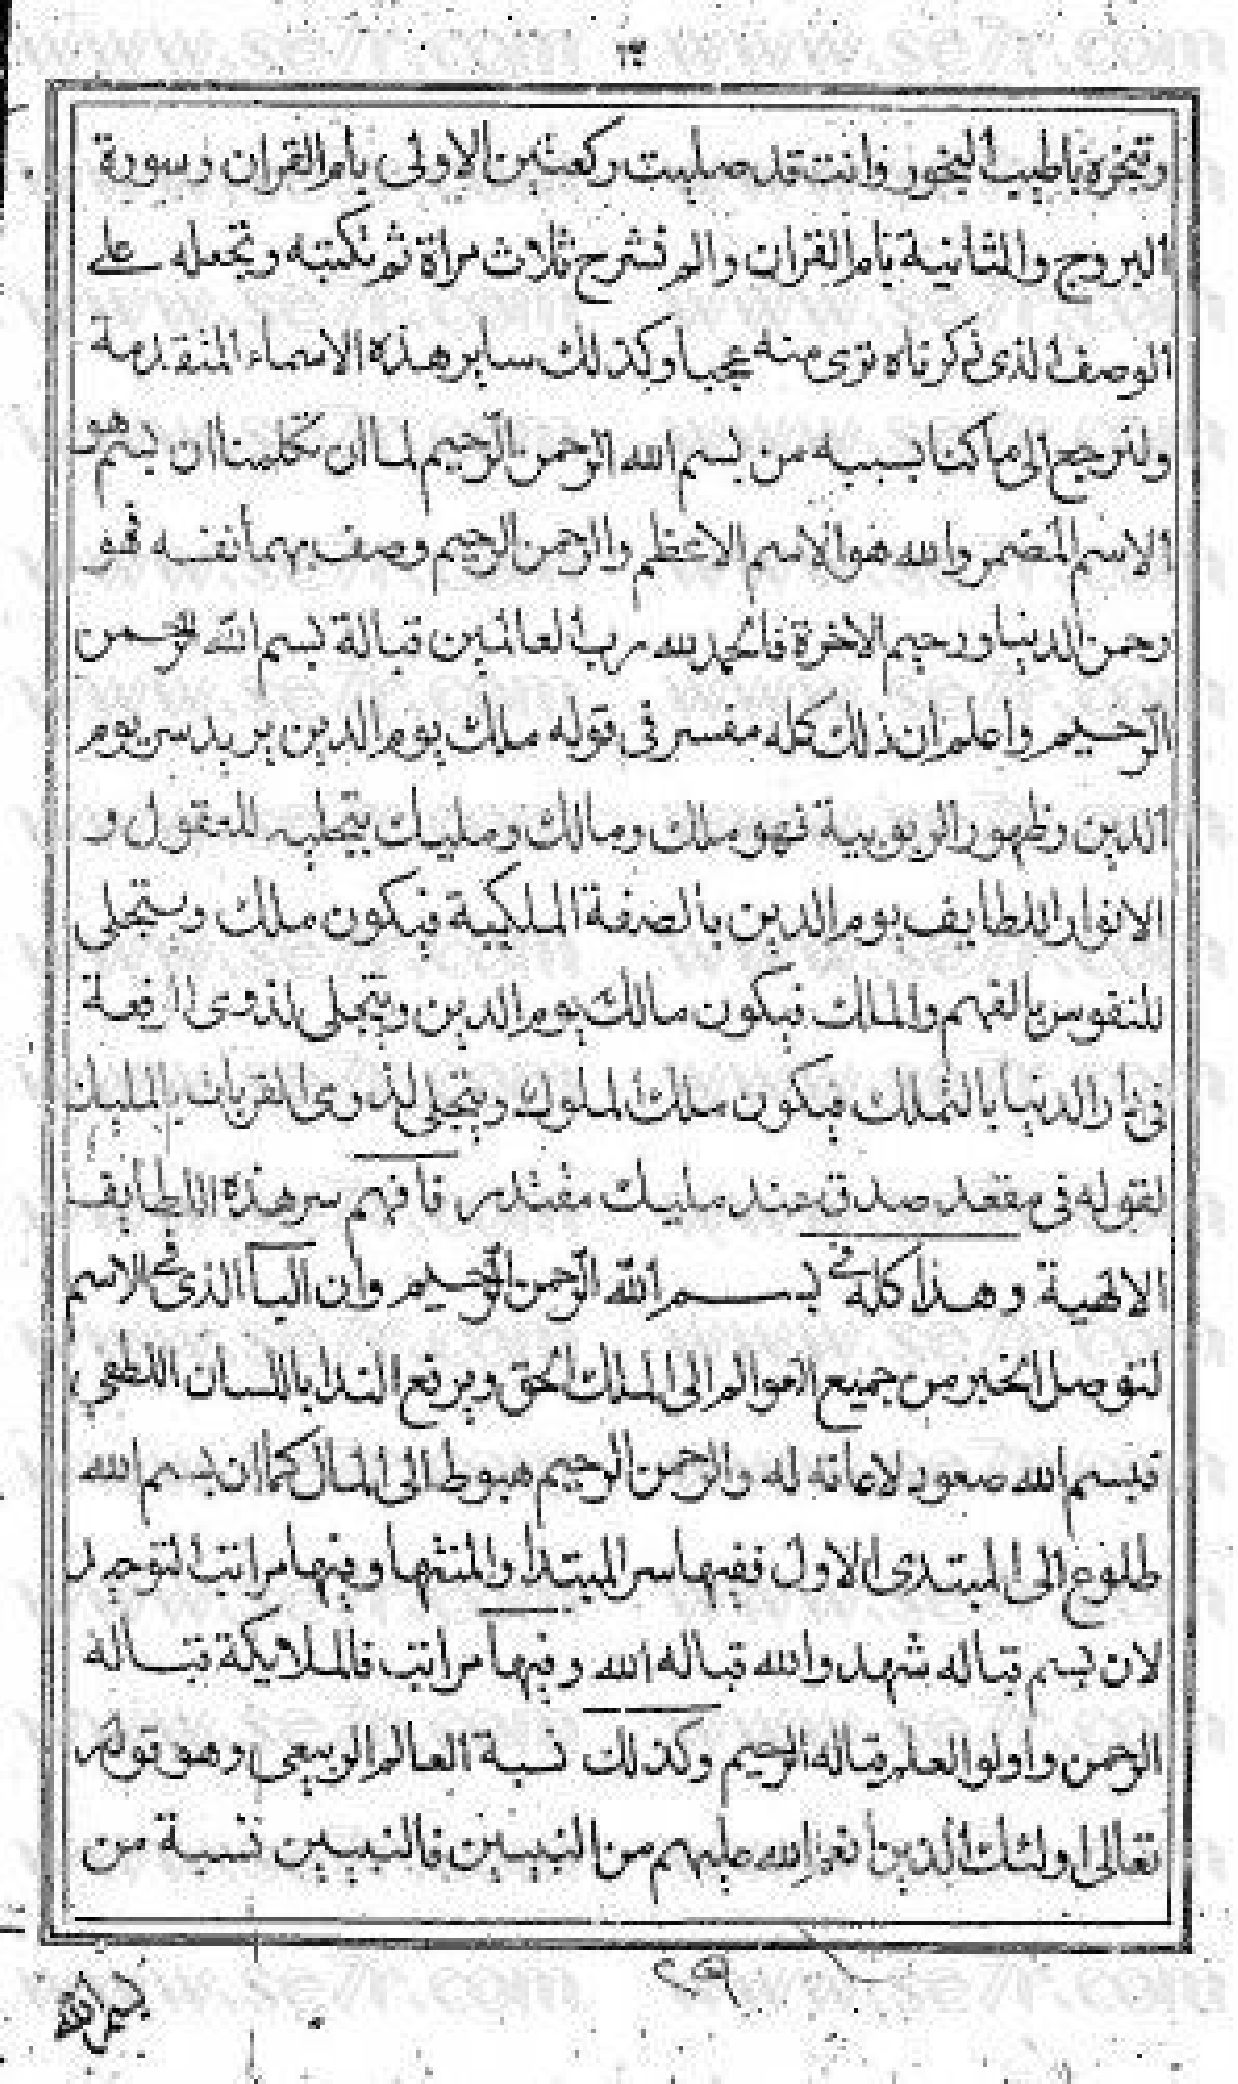 www.se7r.com www.se7r.com
وتبخره باطيب البخور وانت قد صليت ركعتين الاولى بام القران وسورة
البروج والثانية بام القران والم نشرح ثلاث مراة ثم تكتبه وتجعله على
الوصف الذى ذكرناه ترى منه عجبا وكذلك ساير هذه الاسماء المتقدمة
ولنرجع الى ما كنا بسبيه من بسم الله الرحمن الرحيم لما ان تكلمنا ان بسم هو
الاسم المضمر والله هو الاسم الاعظم والرحمن الرحيم وصف بهما نفسه فهو
رحمن الدنيا ورحيم الاخرة فالحمد لله رب العالمين قبالة بسم الله الرحمن
الرحيم واعلم ان ذلك كله مفسر فى قوله ملك يوم الدين يريد سر يوم
الدين وظهور الربوبية فهو ملك ومالك ومليك يتجلى للعقول و
الانوار اللطايف يوم الدين بالصفة الملكية فيكون ملك ويتجلى
للنفوس بالفهم والملك فيكون مالك يوم الدين ويتجلى لذوى الرفعة
فى دار الدنيا بالتملك فيكون ملك الملوك ويتجلى لذوى القربات بالمليك
لقوله فى مقعد صدق عند مليك مقتدر فافهم سر هذه اللطايف
الالهية وهذا كله فى بسم الله الرحمن الرحيم وان البا الذى فى الاسم
لتوصل الخبر من جميع العوالم الى الملك الحق ويرفع الندا باللسان اللطفى
فبسم الله صعود لاعانة له والرحمن الرحيم هبوط الى المال كما ان بسم الله
طلوع الى المبتدى الاول ففيها سر المبتدا والمنتها وفيها مراتب التوحيد
لان بسم قباله شهد والله قباله الله وفيها مراتب فالملايكة قباله
الرحمن واولوا العلم قباله الرحيم وكذلك نسبة العالم الربيعى وهو قوله
تعالى اولئك الذين انعم الله عليهم من النبيين فالنبيين نسبة من
٢٩
بسم الله